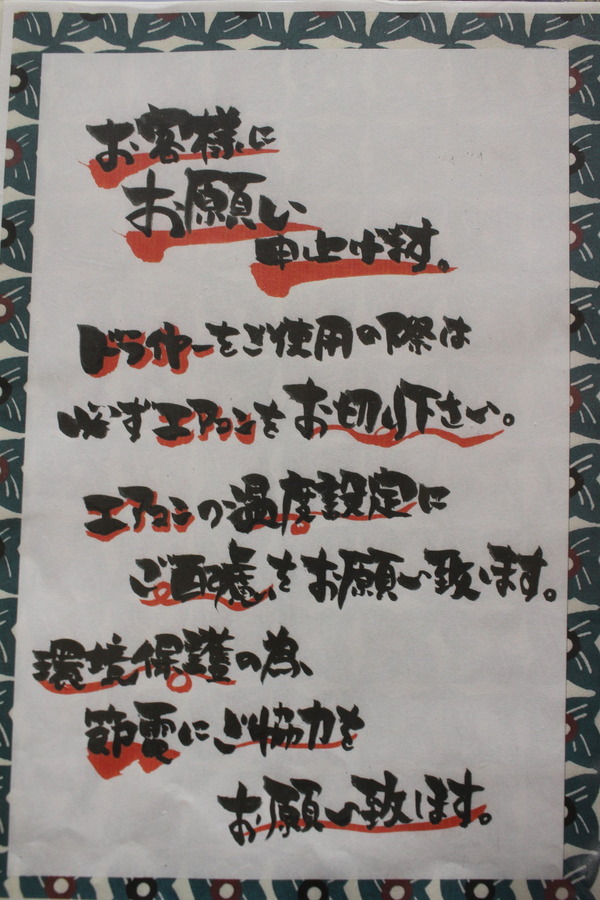 お客様に
お願い
申上げます。
ドライヤーをご使用の際は
必ずエアコンをお切り下さい。
エアコンの温度設定に
ご配慮をお願い致します。
環境保護の為、
節電にご協力を
お願い致します。